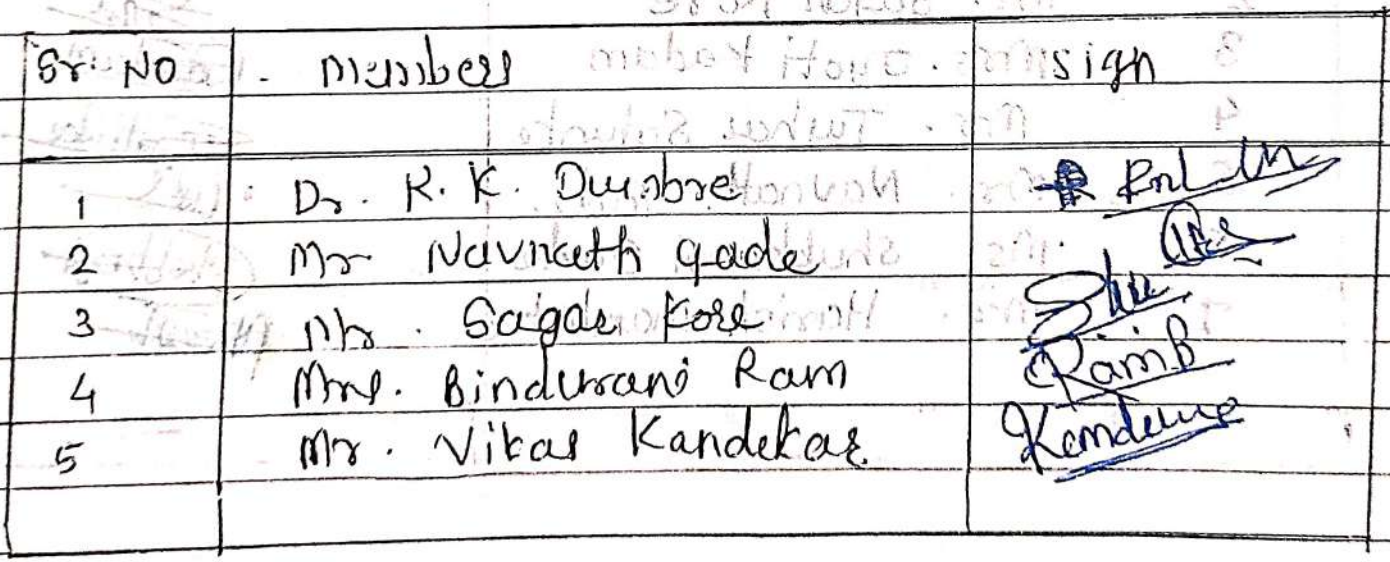 Sr. NO . Members sign
1 Dr. R. K. Dumbre
2 Mr Navnath gade
3 Mr. Sagar Kore
4 Mrs. Bindurani Ram RamB
5 Mr. Vikas Kandekar